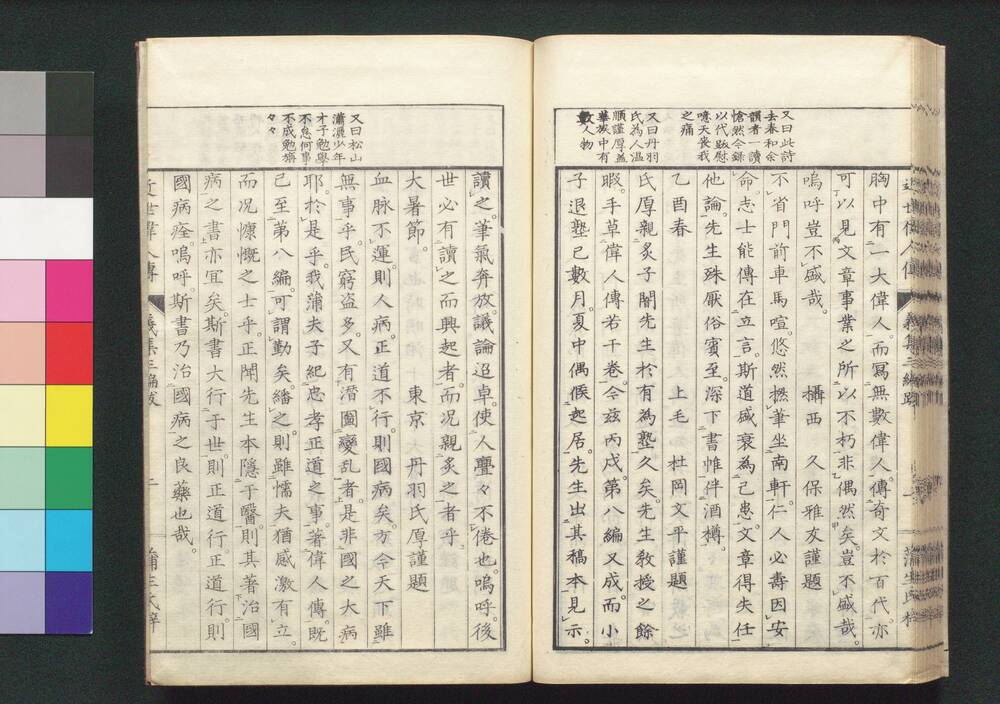 又曰此詩
去春和余
韻者一讀
愴然今錄
以代跋慰
噫天喪我
之痛
又曰丹羽
氏為人温
順謹厚盖
華族中有
數人物
胸中有一大偉人。而寫無數偉人。傳奇文於百代。亦
可以見文章事業之所以不朽非偶然矣。豈不盛哉。
嗚呼豈不盛哉。 攝西 久保雅友謹題
不省門前車馬喧。悠然撚筆坐南軒。仁人必壽因安
命。志士能傳在立言。斯道盛衰為己患。文章得失任
他論。先生殊厭俗賓至。深下書帷伴酒樽。
乙酉春 上毛 杜岡文平謹題
氏厚親炙子闇先生於有為塾久矣。先生敎授之餘
暇。手草偉人傳若干卷。今茲丙戌。第八編又成。而小
子退塾已數月。夏中偶候起居。先生出其稿本見示。
又曰松山
瀟灑少年
才子勉學
不怠何事
不成勉旃
々々
讀之。筆氣奔放。議論迢卓。使人亹々不倦也。嗚呼。後
世必有讀之而興起者。而况親炙之者乎
大暑節。 東京 丹羽氏厚謹題
血脉不運。則人病。正道不行。則國病矣。方今天下雖
無事乎。民窮盗多。又有潛圖變乱者。是非國之大病
耶。於是乎。我蒲夫子紀忠孝正道之事。著偉人傳。既
已至第八編。可謂勤矣。繙之。則雖懦夫猶感激有立。
而况慷慨之士乎。正聞先生本隱于醫。則其著治國
病之書亦宜矣。斯書大行于世。則正道行。正道行。則
國病痊。嗚呼。斯書乃治國病之良藥也哉。
近世偉人傳 義集三編跋 二 蒲生氏梓